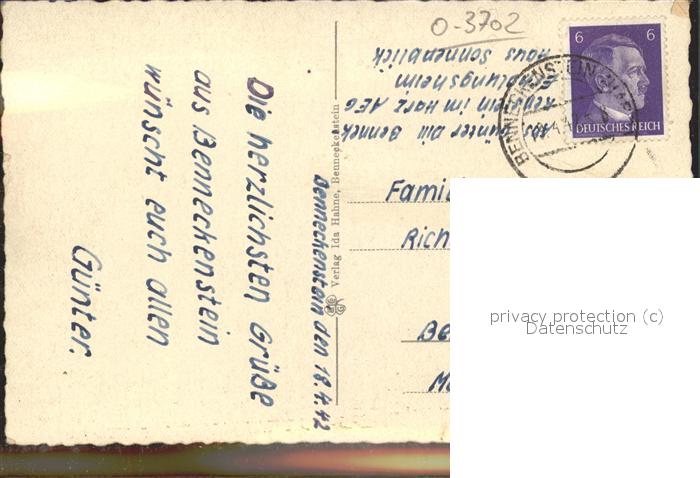 O-3702
6 6
DEUTSCHES REICH
Abs. Günter Dill Benneck
enstein im Harz AEG
Erholungsheim
Haus Sonnenblick
Famil
Rich
Be
Verlag Ida Hahne, Benneckenstein
Benneckenstein den 18.4.42
Die herzlichsten Grüße
aus Benneckenstein
wünscht euch allen
Günter.
privacy protection (c)
Datenschutz